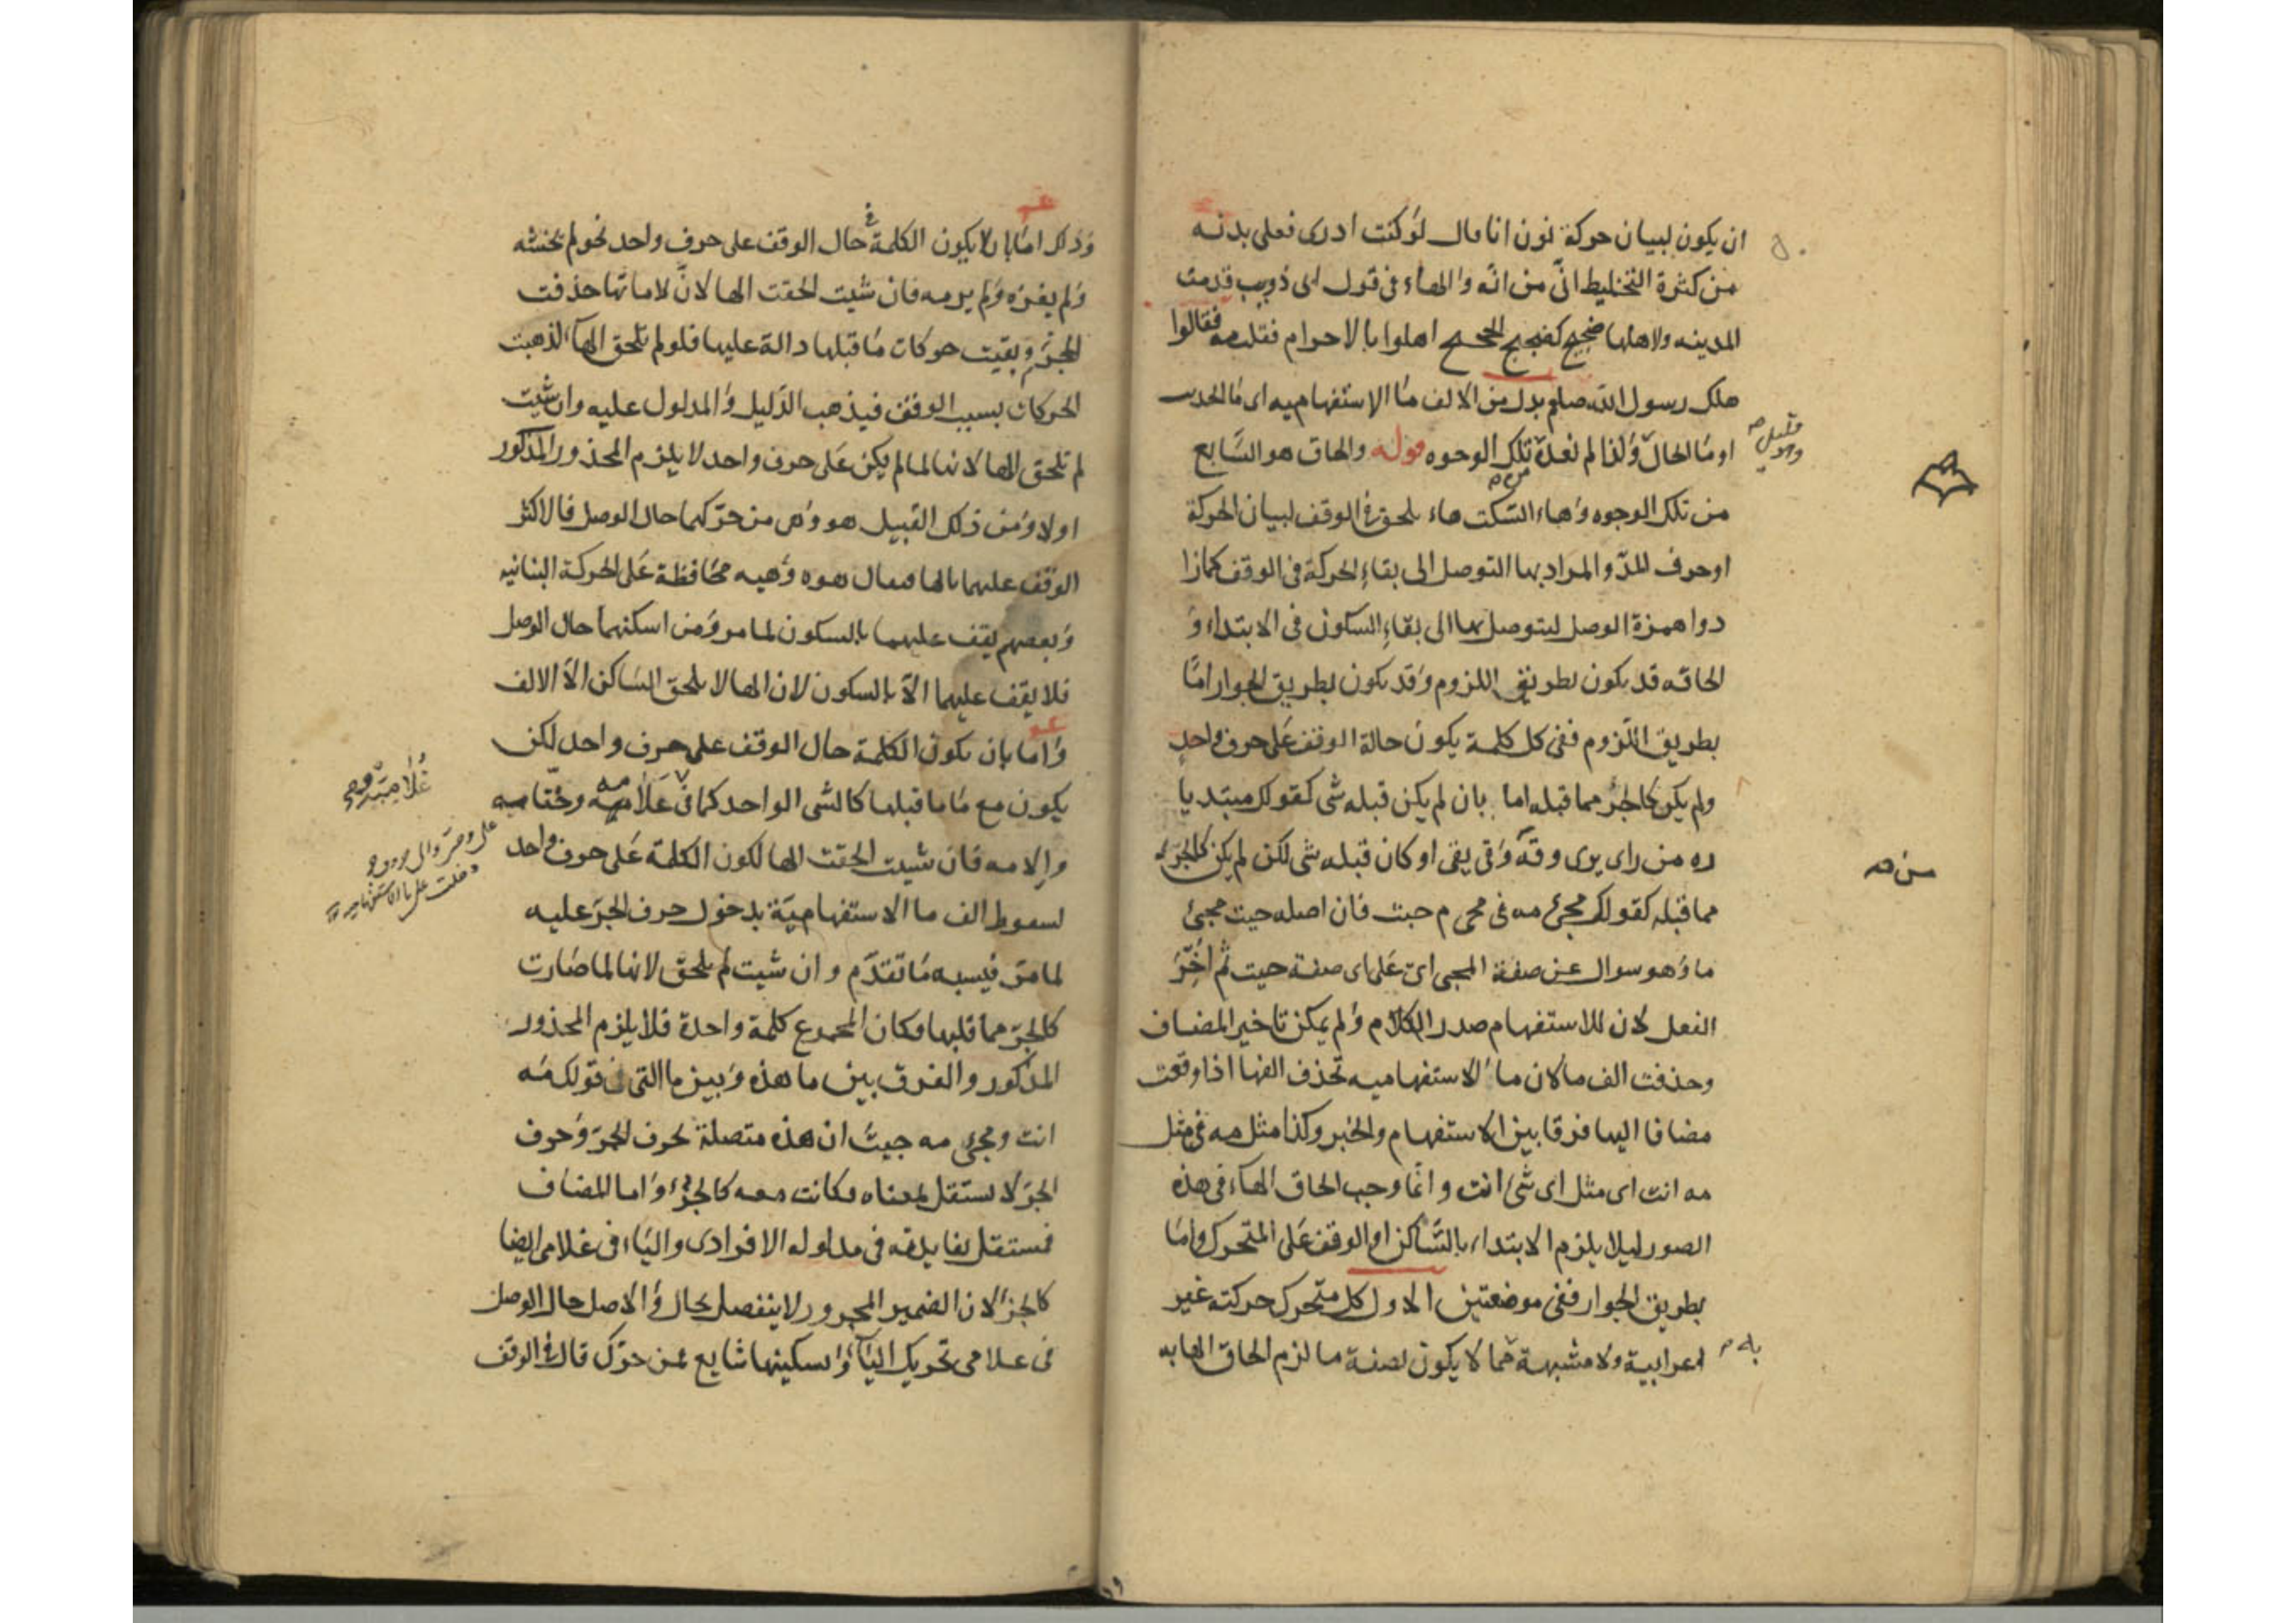 ان يكون لبيان حركة نون انا قال لو كنت ادرى فعلى بدنه
من كثرة التخليط انى من انه والهاء فى قول ابى ذويب قدمت
المدينه ولاهلها ضجيج كضجيج الحجيج اهلوا بالاحرام فقلت مه فقالوا
هلك رسول الله صلم بدل من الالف ما الاستفهاميه اى ما الحدث
او ما الحال ولذا لم نعده تلك الوجوه قوله والحاق هو السابع
من تلك الوجوه وهاء السكت هاء يلحق فى الوقف لبيان الحركة
او حرف المد والمراد بها التوصل الى بقاء الحركة فى الوقف كما زا
دوا همزة الوصل ليتوصل بها الى بقاء السكون فى الابتداء و
الحاقه قد يكون بطريق اللزوم وقد يكون بطريق الجواز اما
بطريق اللزوم ففى كل كلمة يكون حالة الوقف على حرف واحد
ولم يكن كالجزء مما قبله اما بان لم يكن قبله شى كقولك مبتديا
ره من راى يرى وقه وقى يقى او كان قبله شى لكن لم يكن كالجزء
مما قبله كقولك مجئ مه فى مجى م جيت فان اصله جيت مجئ
ما وهو سوال عن صفة المجى اى على اى صفة جيت ثم اخر
الفعل لان للاستفهام صدر الكلام ولم يمكن تاخير المضاف
وحذفت الف ما لان ما الاستفهاميه تحذف الفها اذا وقعت
مضافا اليها فرقا بين الاستفهام والخبر وكذا مثل مه فى مثل
مه انت اى مثل اى شئ انت وانما وجب الحاق الهاء فى هذه
الصور ليلا يلزم الابتداء بالساكن او الوقف على المتحرك واما
بطريق الجواز ففى موضعين الاول كل متحرك حركته غير
اعرابية ولا مشبهة مما لا يكون بصفة ما لزم الحاق الها به
من
وذلك اما بان لا يكون الكلمة فى حال الوقف على حرف واحد نحو لم يخشه
ولم يغزه ولم يرمه فان شيت الحقت الها لان لاماتها حذفت
للجزم وبقيت حركات ما قبلها دالة عليها فلو لم تلحق الهاء لذهبت
الحركات بسبب الوقف فيذهب الدليل والمدلول عليه وان شيت
لم تلحق الها لانها لما لم يكن على حرف واحد لا يلزم المحذور المذكور
اولا ومن ذلك القبيل هو وهى من حركهما حال الوصل فالاكثر
الوقف عليهما بالها فيقال هوه وهيه محافظة على الحركة البنائيه
وبعضهم يقف عليهما بالسكون لما مر ومن اسكنهما حال الوصل
فلا يقف عليهما الا بالسكون لان الها لا يلحق الساكن الا الالف
واما بان يكون الكلمة حال الوقف على حرف واحد لكن
يكون مع ما قبلها كالشى الواحد كما فى علامه وحتامه
والامه فان شيت الحقت الها لكون الكلمة على حرف واحد
لسقوط الف ما الاستفهامية بدخول حرف الجر عليه
لما مر فيشبه ما تقدم وان شيت لم يلحق لانها لما صارت
كالجزء مما قبلها وكان المجموع كلمة واحدة فلا يلزم المحذور
المذكور والفرق بين ما هذه وبين ما التى فى قولك مثل مه
انت ومجئ مه جيت ان هذه متصلة بحرف الجر وحرف
الجر لا يستقل بمعناه فكانت معه كالجزء واما المضاف
فمستقل بفايدته فى مدلوله الافرادى والياء فى غلامى ايضا
كالجزء لان الضمير المجرور لا ينفصل بحال والاصل حال الوصل
فى غلامى تحريك الياء واسكينها شايع فمن حرك قال فى الوقف